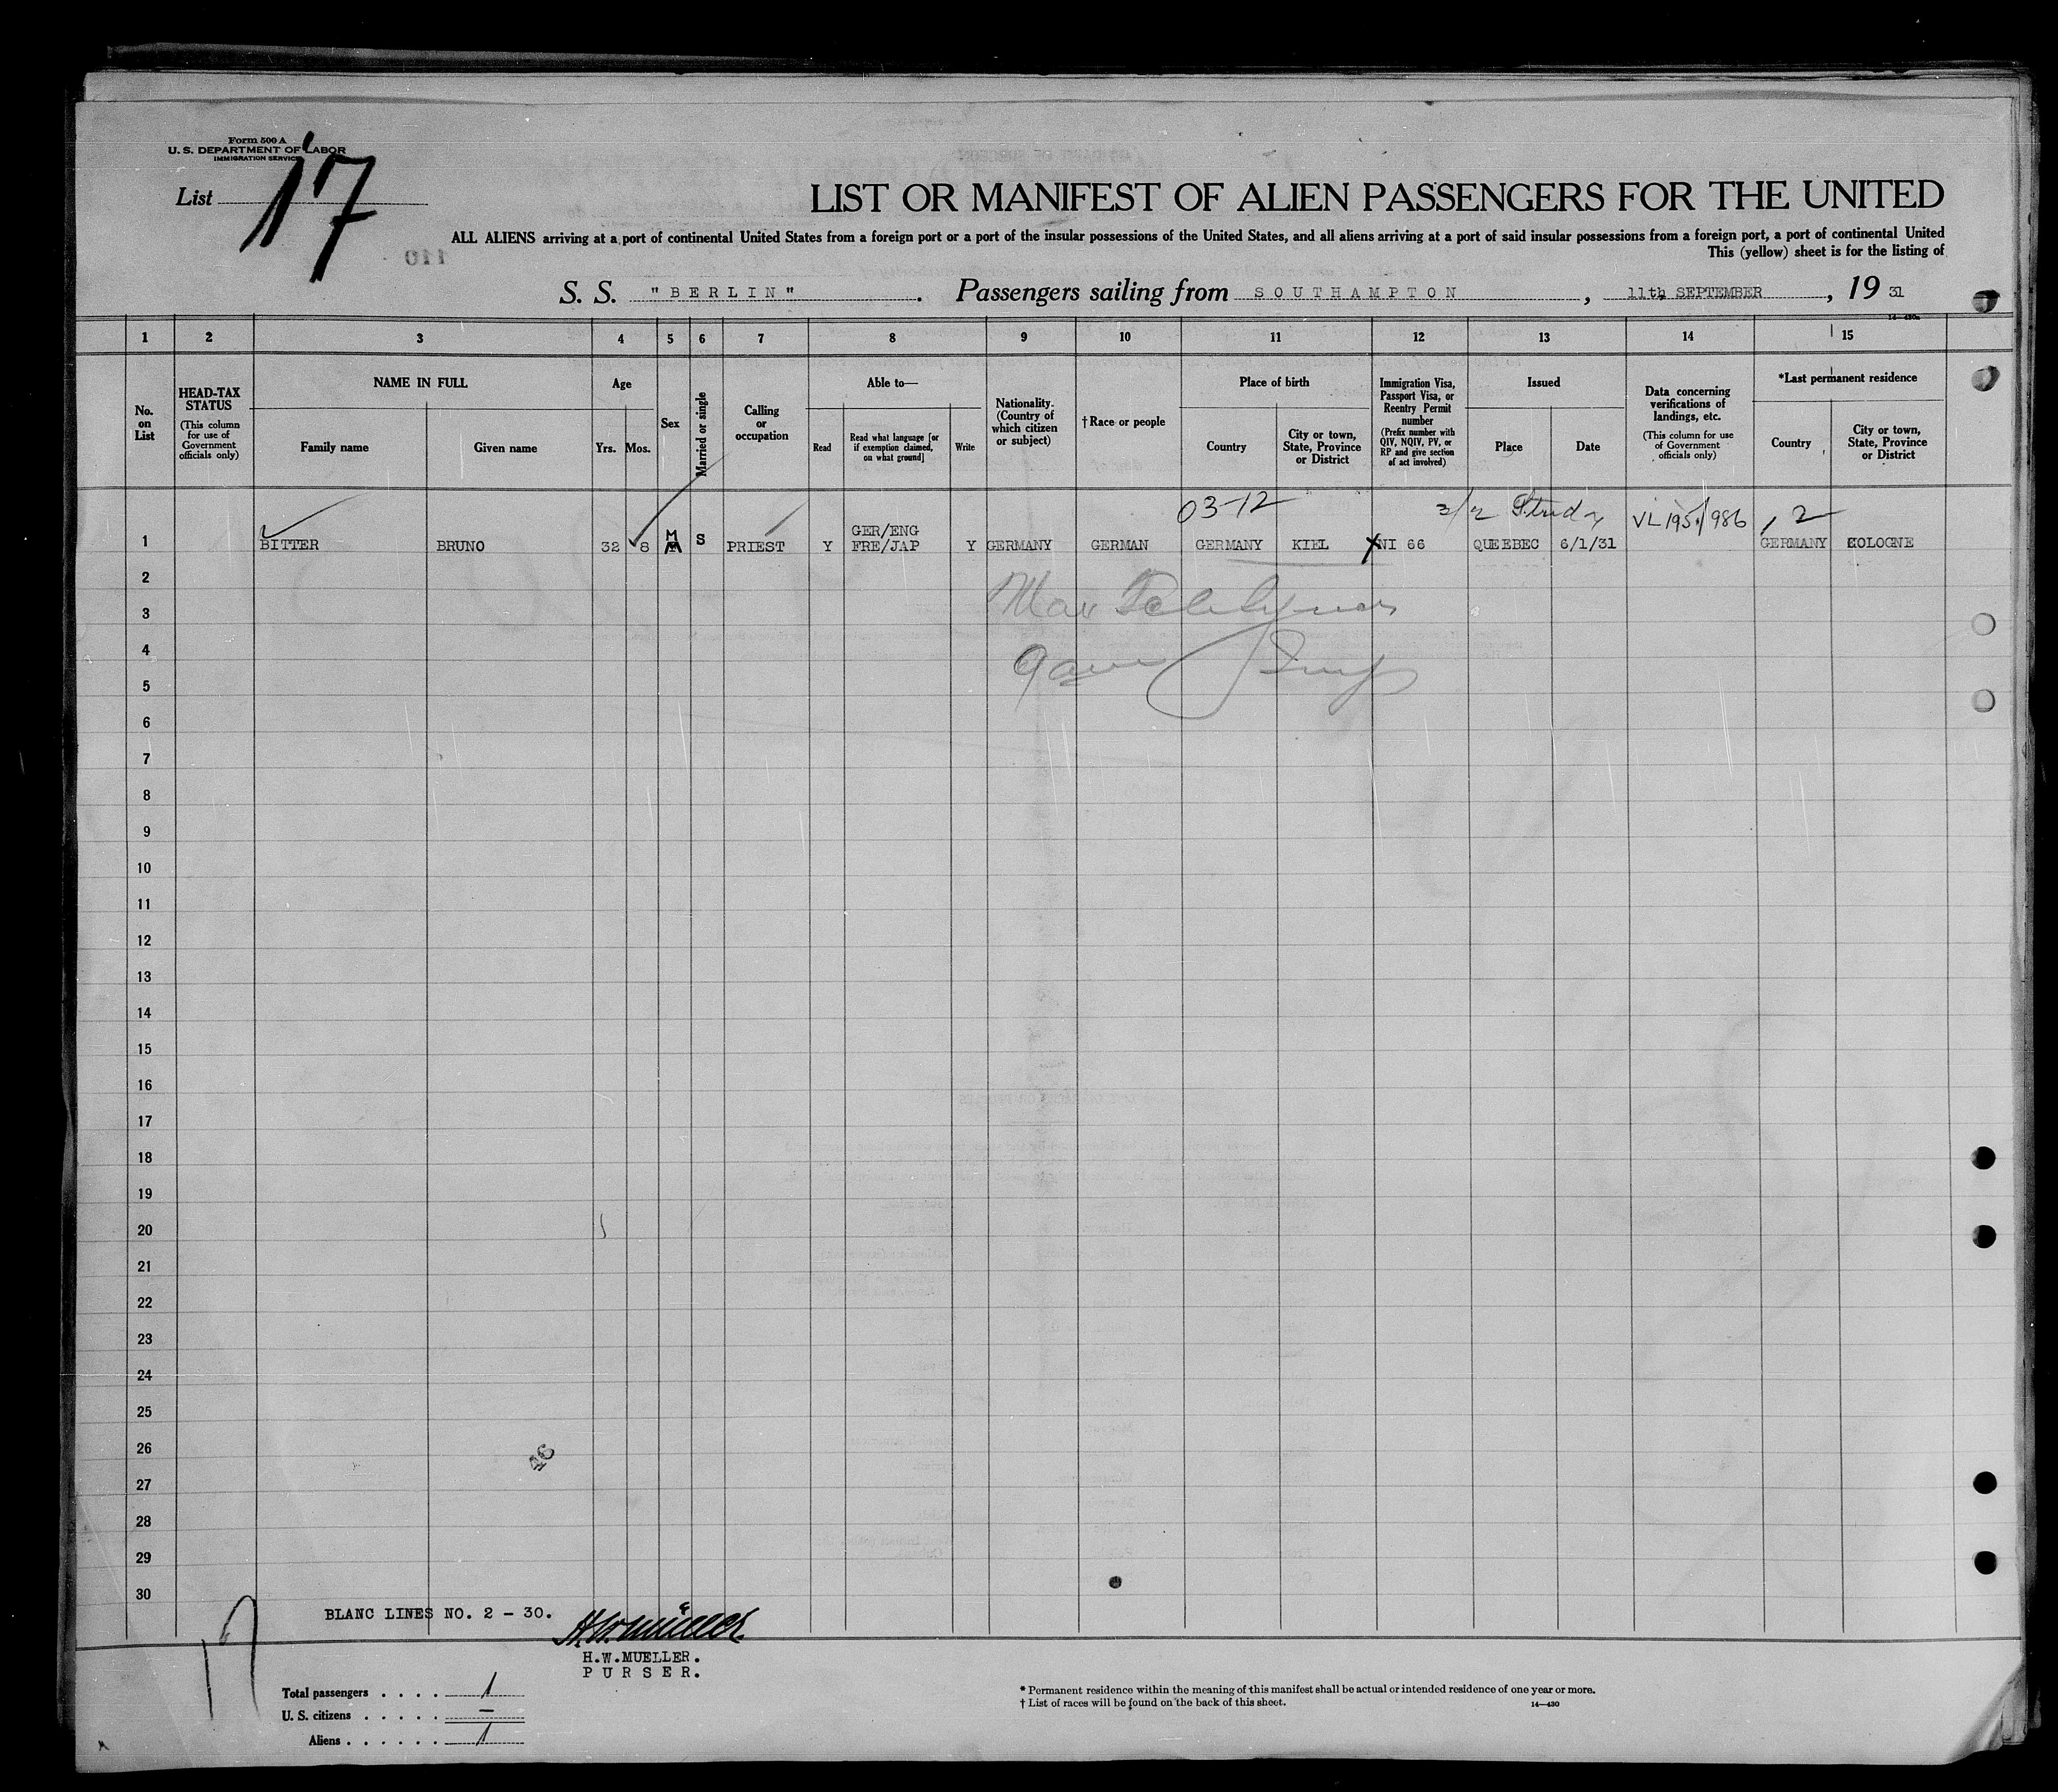 Form 500 A
U. S. DEPARTMENT OF LABOR
IMMIGRATION SERVICE
List 17
LIST OR MANIFEST OF ALIEN PASSENGERS FOR THE UNITED
ALL ALIENS arriving at a port of continental United States from a foreign port or a port of the insular possessions of the United States, and all aliens arriving at a port of said insular possessions from a foreign port, a port of continental United
This (yellow) sheet is for the listing of
110
S. S. "BERLIN". Passengers sailing from SOUTHAMPTON, 11th SEPTEMBER, 19 31
14—430a
1 2 3 4 5 6 7 8 9 10 11 12 13 14 15
No. on List
HEAD-TAX STATUS
(This column for use of Government officials only)
NAME IN FULL
Family name Given name
Age
Yrs. Mos.
Sex
Married or single
Calling or occupation
Able to—
Read
Read what language [or if exemption claimed, on what ground]
Write
Nationality. (Country of which citizen or subject)
†Race or people
Place of birth
Country
City or town, State, Province or District
Immigration Visa, Passport Visa, or Reentry Permit number
(Prefix number with QIV, NQIV, PV, or RP and give section of act involved)
Issued
Place Date
Data concerning verifications of landings, etc.
(This column for use of Government officials only)
*Last permanent residence
Country
City or town, State, Province or District
03-12 3/2 Study VL 195/986 , 2
1 BITTER BRUNO 32 8 M S PRIEST Y GER/ENG FRE/JAP Y GERMANY GERMAN GERMANY KIEL NI 66 QUEEBEC 6/1/31 GERMANY COLOGNE
2
Max
3
4
5
6
7
8
9
10
11
12
13
14
15
16
17
18
19
20
21
22
23
24
25
26
27
28
29
30
46
BLANC LINES NO. 2 - 30.
H.W. Müller
H.W.MUELLER.
PURSER.
17
Total passengers . . . . 1
U. S. citizens . . . . . —
Aliens . . . . . . 1
* Permanent residence within the meaning of this manifest shall be actual or intended residence of one year or more.
† List of races will be found on the back of this sheet. 14—430